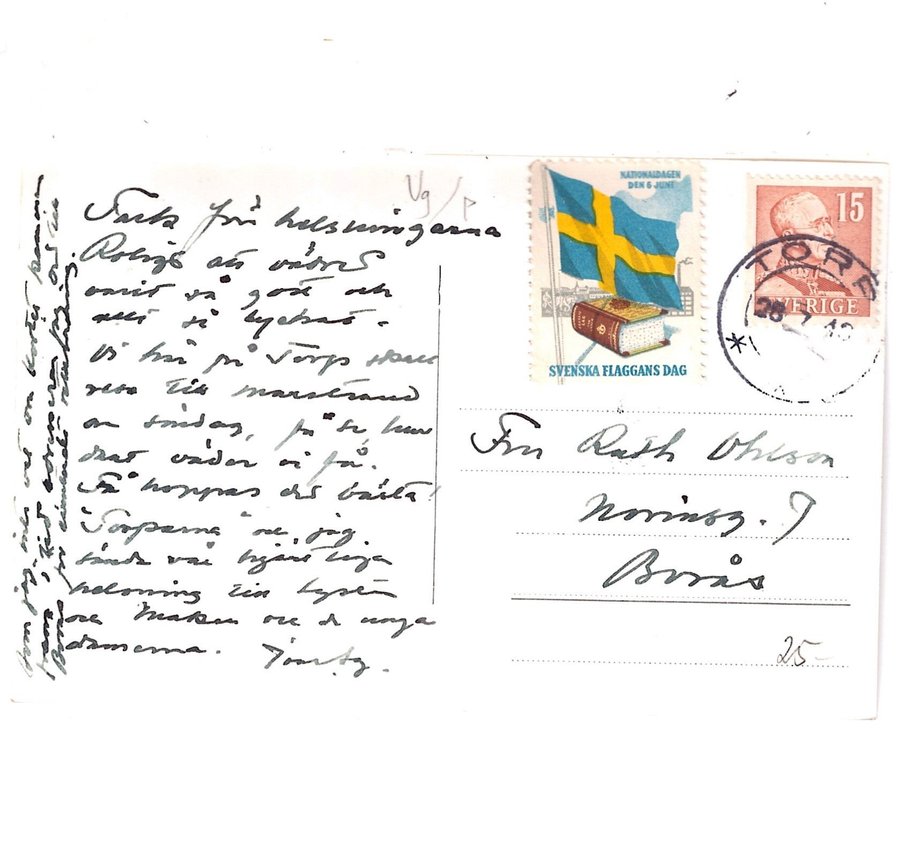 Vg/p
Tack för helsningarna
Roligt att vädret
varit så gott och
allt så lyckat.
Vi här på Torp skall
resa till Marstrand
om söndag, få se hur
dant väder vi få.
Få hoppas det bästa!
"Torparna" oc jag
sända vår hjärtliga
helsning till
oc Maken oc de unga
damerna.
Om jag inte vet om kortet kommer
fram
Borås för
NATIONALDAGEN
DEN 6 JUNI
SVENSKA FLAGGANS DAG
15
SVERIGE
TÖRE
28 7 4
Fru Ruth Ohlson
Noringg. 7
Borås
25-